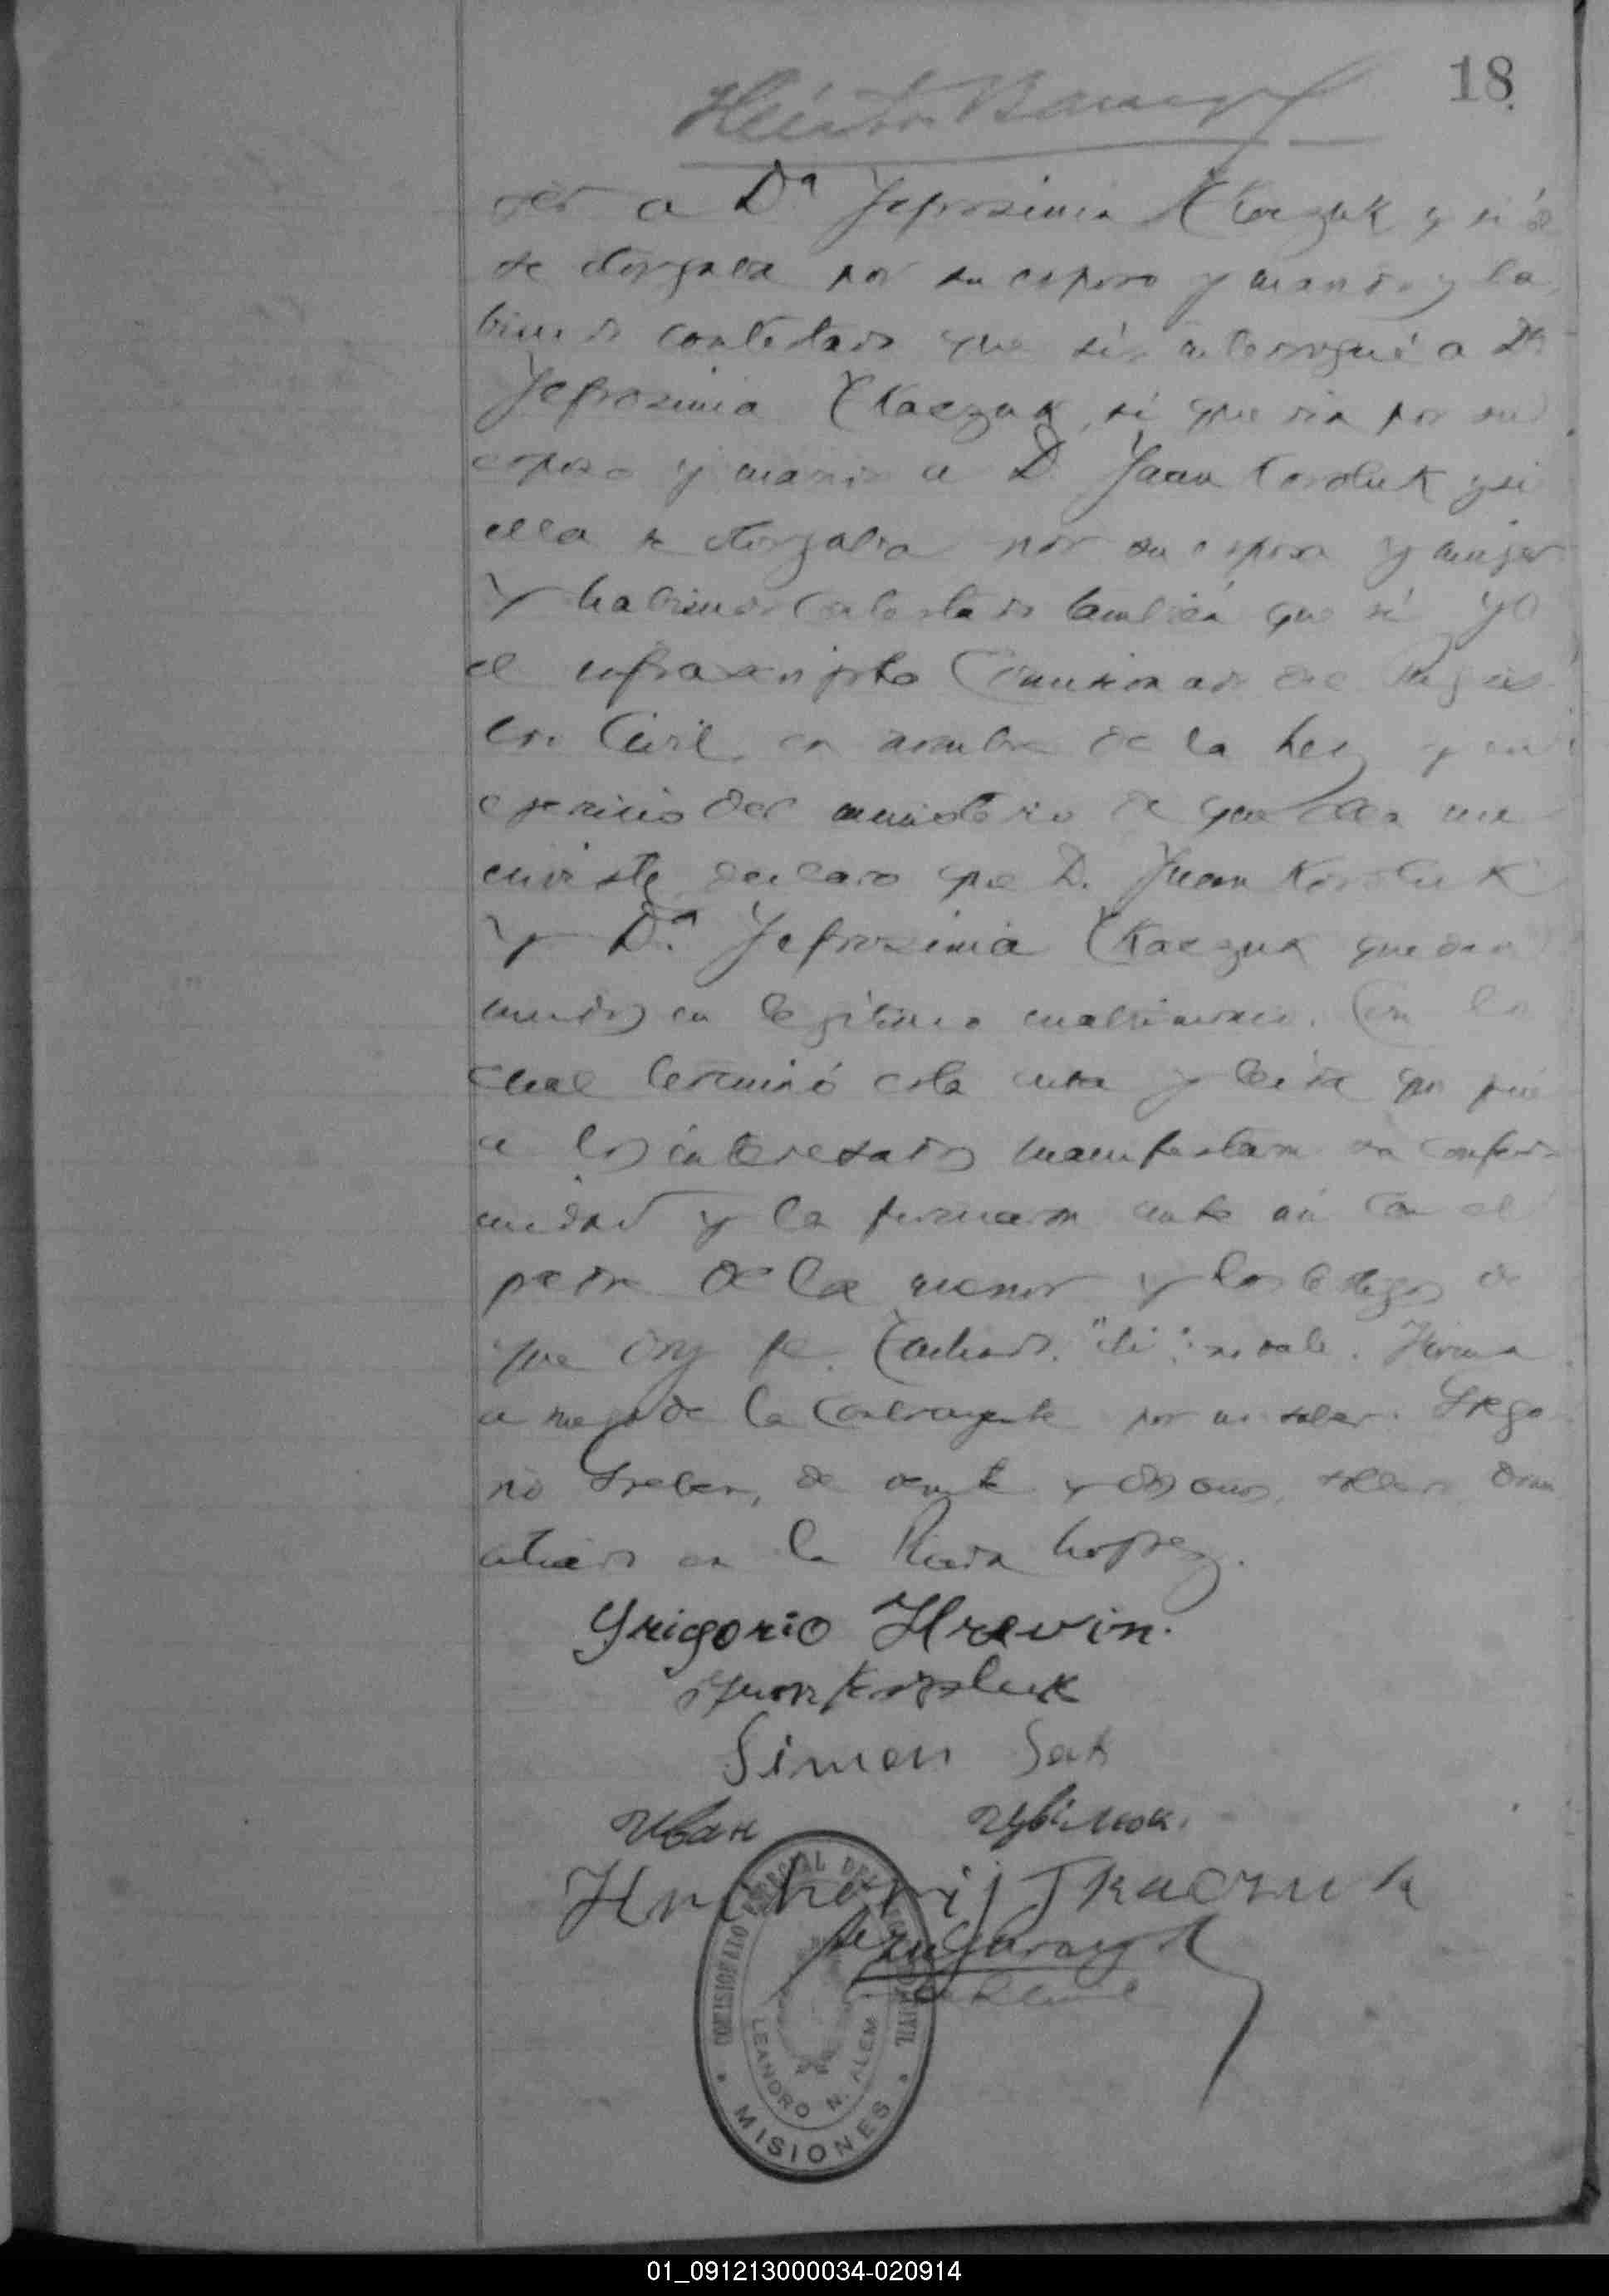 18
jer a Dª Jefrosinia Tkaczuk y si él
se otorgaba por su esposo y marido y ha
biendo contestado que sí, interrogué a Dª
Jefrosinia Tkaczuk, si quería por su
esposo y marido a D. Juan Koroluk y si
ella se otorgaba por su esposa y mujer
Y habiendo contestado también que sí yo
el infrascripto Comisionado del Regis
tro Civil en nombre de la Ley y en
ejercicio del ministerio de que ella me
inviste declaro que D. Juan Koroluk
Y Dª Jefrosinia Tkaczuk quedan
unidos en legítimo matrimonio. Con lo
cual terminó esta acta y leída que fué
a los interesados manifestaron su confor
midad y la firmaron ante mi con el
padre de la menor y los testigos de
que doy fe. Tachado no vale. Firma
a ruego de la contrayente por no saber Grego
rio de veinte y dos años, soltero, domi
ciliado en la Picada Lopez.
Grigorio Hrevin.
Juan Koroluk
Simon Sak
Иван
Hrihorij Tkaczuk
COMISIONADO ESPECIAL DEL REGISTRO CIVIL
LEANDRO N. ALEM
MISIONES
01_091213000034-020914